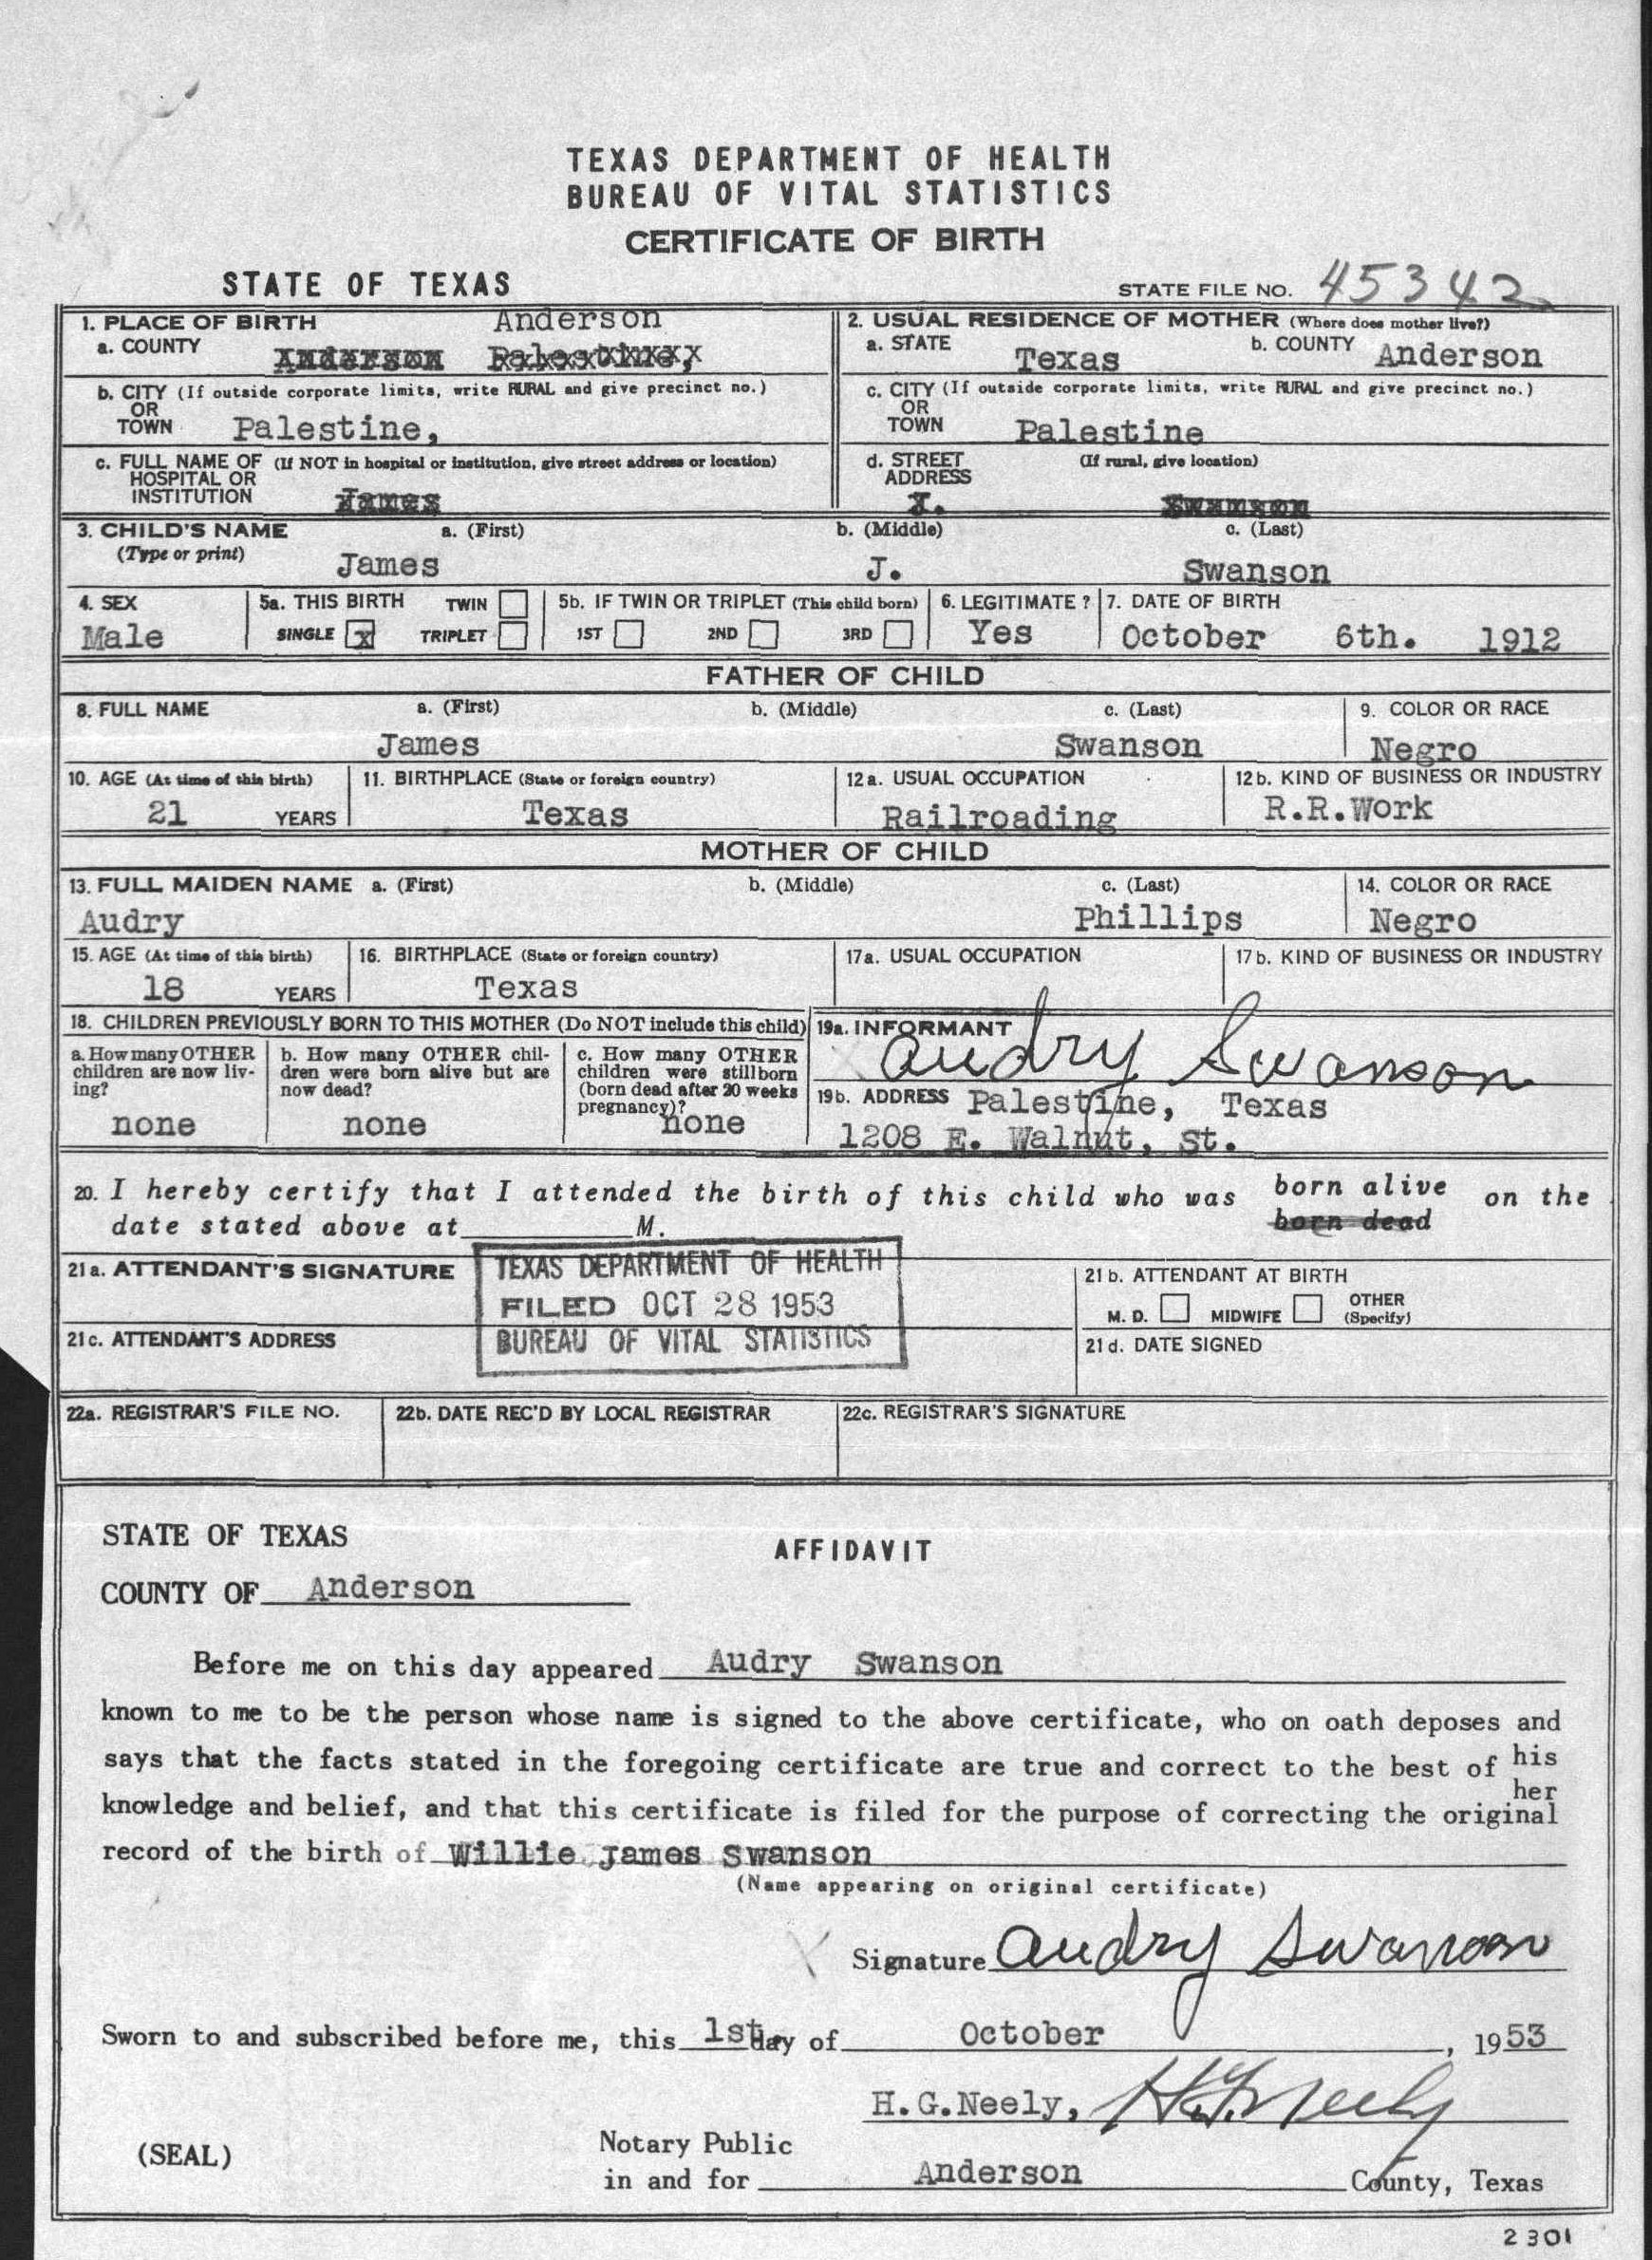 TEXAS DEPARTMENT OF HEALTH
BUREAU OF VITAL STATISTICS
CERTIFICATE OF BIRTH
STATE OF TEXAS
STATE FILE NO. 45342
1. PLACE OF BIRTH
a. COUNTY
Anderson
Anderson Palestine,
2. USUAL RESIDENCE OF MOTHER (Where does mother live?)
a. STATE Texas b. COUNTY Anderson
b. CITY (If outside corporate limits, write RURAL and give precinct no.)
OR
TOWN Palestine,
c. CITY (If outside corporate limits, write RURAL and give precinct no.)
OR
TOWN Palestine
c. FULL NAME OF (If NOT in hospital or institution, give street address or location)
HOSPITAL OR
INSTITUTION James
d. STREET (If rural, give location)
ADDRESS
J. Swanson
3. CHILD'S NAME a. (First) b. (Middle) c. (Last)
(Type or print) James J. Swanson
4. SEX
Male
5a. THIS BIRTH TWIN
SINGLE x TRIPLET
5b. IF TWIN OR TRIPLET (This child born)
1ST 2ND 3RD
6. LEGITIMATE ?
Yes
7. DATE OF BIRTH
October 6th. 1912
FATHER OF CHILD
8. FULL NAME a. (First) b. (Middle) c. (Last)
James Swanson
9. COLOR OR RACE
Negro
10. AGE (At time of this birth)
21 YEARS
11. BIRTHPLACE (State or foreign country)
Texas
12a. USUAL OCCUPATION
Railroading
12b. KIND OF BUSINESS OR INDUSTRY
R.R.Work
MOTHER OF CHILD
13. FULL MAIDEN NAME a. (First) b. (Middle) c. (Last)
Audry Phillips
14. COLOR OR RACE
Negro
15. AGE (At time of this birth)
18 YEARS
16. BIRTHPLACE (State or foreign country)
Texas
17a. USUAL OCCUPATION
17b. KIND OF BUSINESS OR INDUSTRY
18. CHILDREN PREVIOUSLY BORN TO THIS MOTHER (Do NOT include this child)
a. How many OTHER
children are now liv-
ing?
none
b. How many OTHER chil-
dren were born alive but are
now dead?
none
c. How many OTHER
children were stillborn
(born dead after 20 weeks
pregnancy)?
none
19a. INFORMANT
Audry Swanson
19b. ADDRESS Palestine, Texas
1208 E. Walnut, St.
20. I hereby certify that I attended the birth of this child who was born alive on the
born dead
date stated above at M.
21a. ATTENDANT'S SIGNATURE
TEXAS DEPARTMENT OF HEALTH
FILED OCT 28 1953
BUREAU OF VITAL STATISTICS
21b. ATTENDANT AT BIRTH
M. D. MIDWIFE OTHER
(Specify)
21c. ATTENDANT'S ADDRESS
21d. DATE SIGNED
22a. REGISTRAR'S FILE NO.
22b. DATE REC'D BY LOCAL REGISTRAR
22c. REGISTRAR'S SIGNATURE
STATE OF TEXAS
AFFIDAVIT
COUNTY OF Anderson
Before me on this day appeared Audry Swanson
known to me to be the person whose name is signed to the above certificate, who on oath deposes and
says that the facts stated in the foregoing certificate are true and correct to the best of his
her
knowledge and belief, and that this certificate is filed for the purpose of correcting the original
record of the birth of Willie James Swanson
(Name appearing on original certificate)
X Signature Audry Swanson
Sworn to and subscribed before me, this 1st day of October, 1953
H.G.Neely, H.G. Neely
(SEAL)
Notary Public
in and for Anderson County, Texas
2301